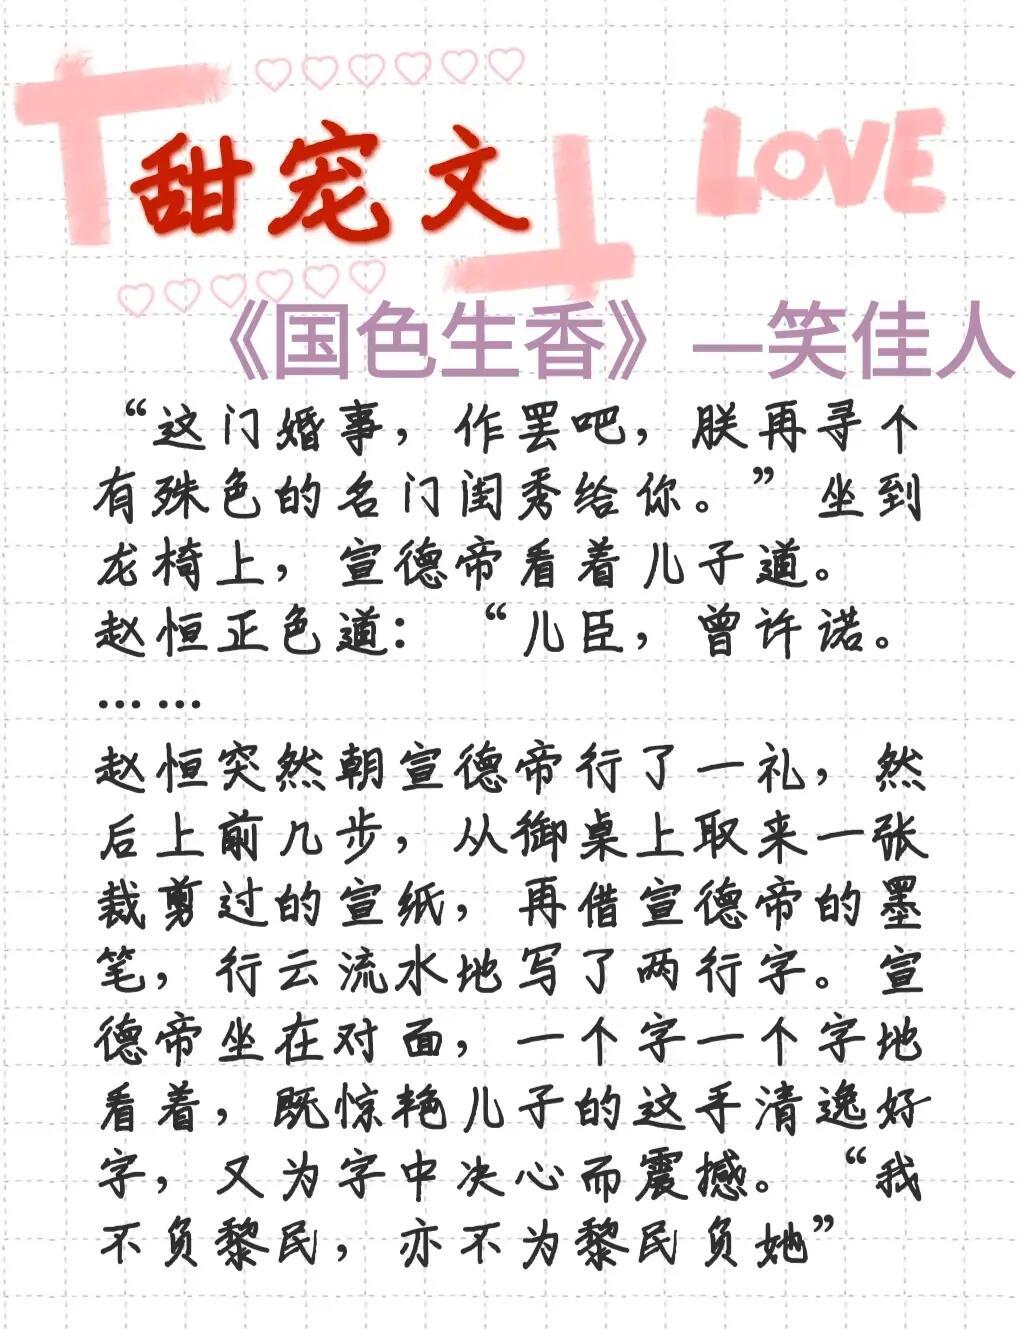 甜宠文
LOVE
《国色生香》—笑佳人
“这门婚事，作罢吧，朕再寻个
有殊色的名门闺秀给你。”坐到
龙椅上，宣德帝看着儿子道。
赵恒正色道：“儿臣，曾许诺。
……
赵恒突然朝宣德帝行了一礼，然
后上前几步，从御桌上取来一张
裁剪过的宣纸，再借宣德帝的墨
笔，行云流水地写了两行字。宣
德帝坐在对面，一个字一个字地
看着，既惊艳儿子的这手清逸好
字，又为字中决心而震撼。“我
不负黎民，亦不为黎民负她”